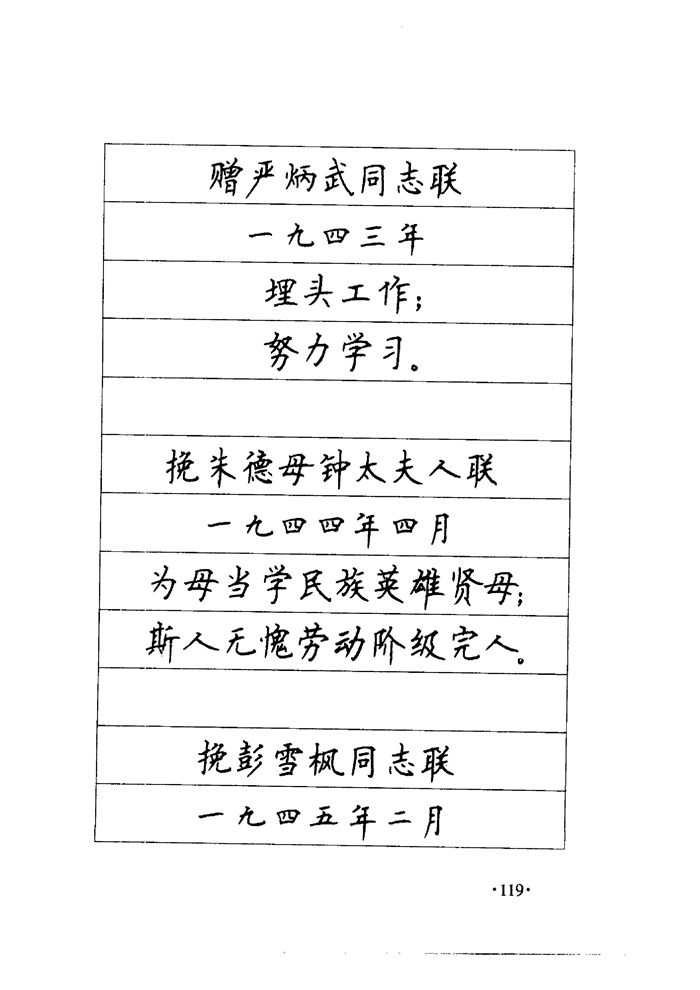 赠严炳武同志联
一九四三年
埋头工作；
努力学习。
挽朱德母钟太夫人联
一九四四年四月
为母当学民族英雄贤母；
斯人无愧劳动阶级完人。
挽彭雪枫同志联
一九四五年二月
·119·